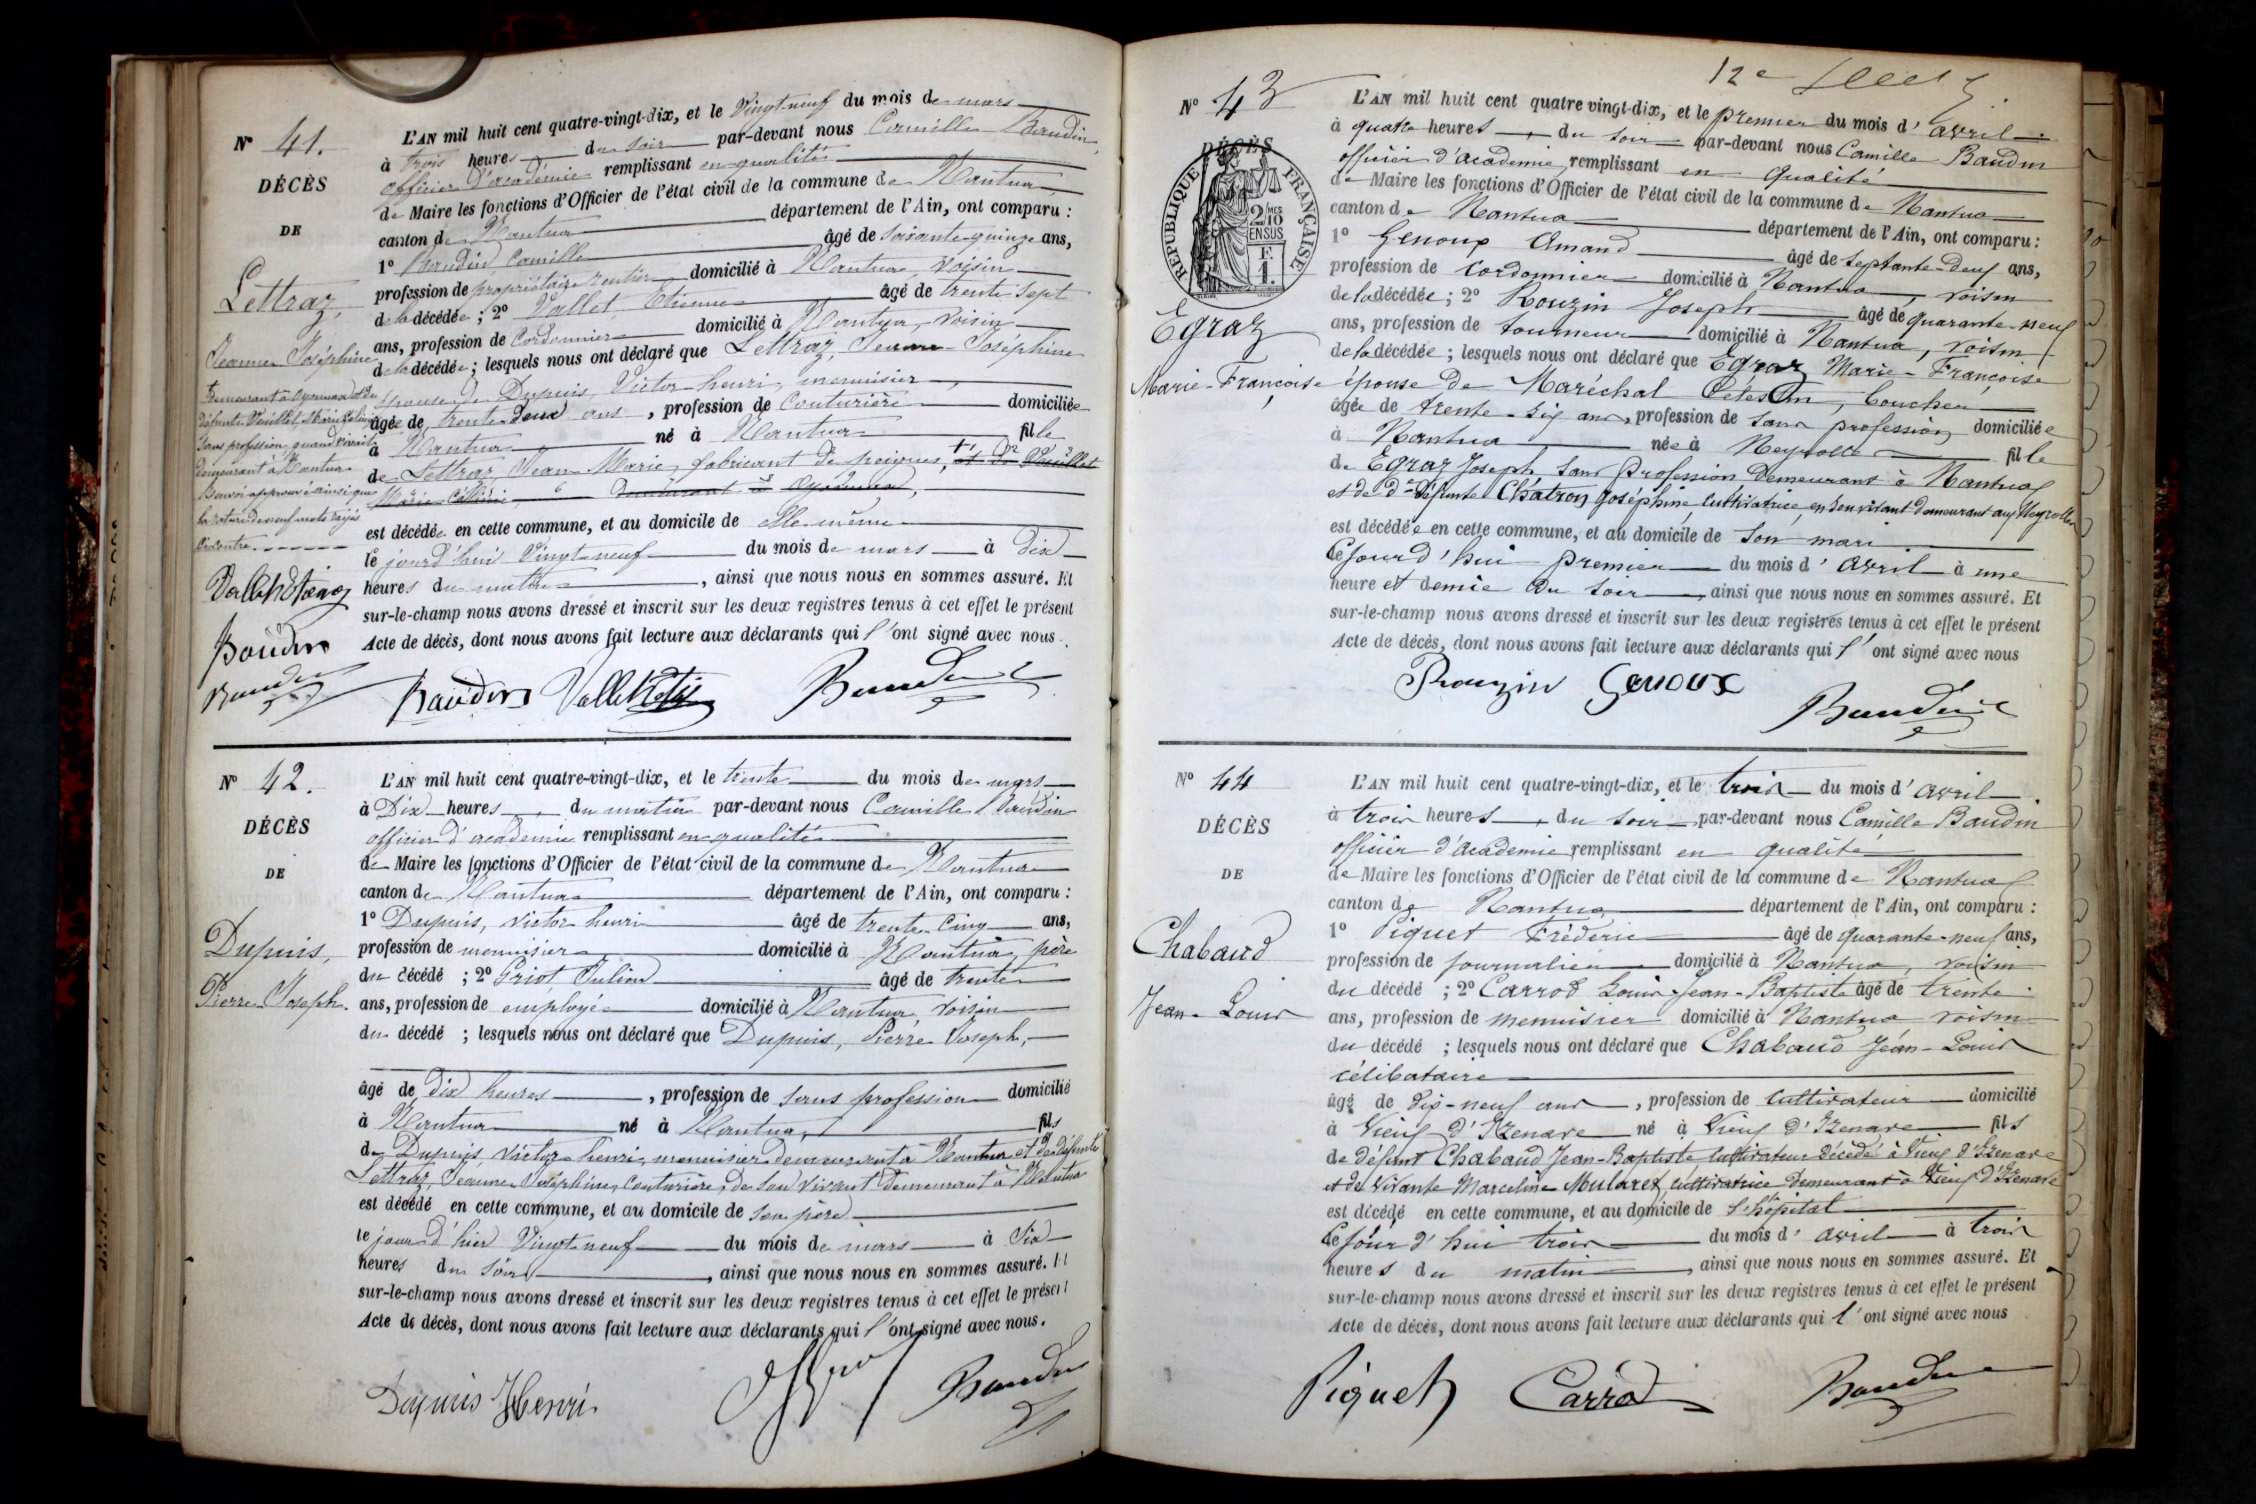 N° 41.
DÉCÈS
DE
Lettraz,
Jeanne Joséphine
demeurant à Oyonnax et de
défunte Vuillet Marie Céline
sans profession, quand vivait
demeurant à Nantua
Renvoi approuvé ainsi que
la rature de neuf mots rayés
ci-contre
Vallet Etienne
Baudin
Baudin
L'AN mil huit cent quatre-vingt-dix, et le Vingt-neuf du mois de mars
à trois heures du soir par-devant nous Camille Baudin,
officier d'académie remplissant en qualité
de Maire les fonctions d'Officier de l'état civil de la commune de Nantua
canton de Nantua département de l'Ain, ont comparu :
1° Baudin Camille âgé de soixante-quinze ans,
profession de propriétaire rentier domicilié à Nantua, voisin
de la décédée ; 2° Vallet, Etienne âgé de trente sept
ans, profession de Cordonnier domicilié à Nantua, voisin
de la décédée ; lesquels nous ont déclaré que Lettraz, Jeanne-Joséphine
épouse de Dupuis, Victor henri, menuisier,
âgée de trente deux ans, profession de Couturière domiciliée
à Nantua né à Nantua fille
de Lettraz, Jean Marie, fabricant de peignes, et de Vuillet
Marie Céline demeurant à Oyonnax,
est décédée en cette commune, et au domicile de elle-même
le jourd'hui Vingt-neuf du mois de mars à Dix
heures du matin, ainsi que nous nous en sommes assuré. Et
sur-le-champ nous avons dressé et inscrit sur les deux registres tenus à cet effet le présent
Acte de décès, dont nous avons fait lecture aux déclarants qui l'ont signé avec nous.
Baudin Vallet Baudin
N° 42.
DÉCÈS
DE
Dupuis,
Pierre Joseph.
L'AN mil huit cent quatre-vingt-dix, et le trente du mois de mars
à Dix heures, du matin par-devant nous Camille Baudin
officier d'académie remplissant en qualité
de Maire les fonctions d'Officier de l'état civil de la commune de Nantua
canton de Nantua département de l'Ain, ont comparu :
1° Dupuis, Victor henri âgé de trente-Cinq ans,
profession de menuisier domicilié à Nantua, père
du décédé ; 2° Griot Julien âgé de trente
ans, profession de employé domicilié à Nantua voisin
du décédé ; lesquels nous ont déclaré que Dupuis, Pierre Joseph,
âgé de dix heures, profession de sans profession domicilié
à Nantua né à Nantua, fils
de Dupuis Victor henri, menuisier demeurant à Nantua et de défunte
Lettraz, Jeanne Joséphine, Couturière, de son vivant demeurant à Nantua
est décédé en cette commune, et au domicile de son père
le jour d'hier Vingt-neuf du mois de mars à Six
heures du soir, ainsi que nous nous en sommes assuré. Et
sur-le-champ nous avons dressé et inscrit sur les deux registres tenus à cet effet le présent
Acte de décès, dont nous avons fait lecture aux déclarants qui l'ont signé avec nous.
Dupuis Henri Baudin
12e
N° 43
DÉCÈS
RÉPUBLIQUE FRANÇAISE
2/10 MES
EN SUS
F.
1.
Egraz
Marie-Françoise
L'AN mil huit cent quatre vingt-dix, et le premier du mois d'avril
à quatre heures, du soir par-devant nous Camille Baudin
officier d'académie remplissant en qualité
de Maire les fonctions d'Officier de l'état civil de la commune de Nantua
canton de Nantua département de l'Ain, ont comparu :
1° Genoux Amand âgé de septante-deux ans,
profession de cordonnier domicilié à Nantua, voisin
de la décédée ; 2° Rouzin Joseph âgé de quarante-neuf
ans, profession de tourneur domicilié à Nantua, voisin
de la décédée ; lesquels nous ont déclaré que Egraz Marie-Françoise
épouse de Maréchal Célestin, boucher
âgée de trente-six ans, profession de sans profession domiciliée
à Nantua née à Neyrolles fille
de Egraz Joseph sans profession demeurant à Nantua
et de défunte Châtron Joséphine cultivatrice, en son vivant demeurant aux Neyrolles
est décédée en cette commune, et au domicile de son mari
ce jourd'hui premier du mois d'avril à une
heure et demie du soir, ainsi que nous nous en sommes assuré. Et
sur-le-champ nous avons dressé et inscrit sur les deux registres tenus à cet effet le présent
Acte de décès, dont nous avons fait lecture aux déclarants qui l'ont signé avec nous
Rouzin Genoux
Baudin
N° 44
DÉCÈS
DE
Chabaud
Jean-Louis
L'AN mil huit cent quatre-vingt-dix, et le trois du mois d'avril
à trois heures, du soir, par-devant nous Camille Baudin
officier d'académie remplissant en qualité
de Maire les fonctions d'Officier de l'état civil de la commune de Nantua
canton de Nantua département de l'Ain, ont comparu :
1° Piquet Fréderic âgé de quarante-neuf ans,
profession de journalier domicilié à Nantua, voisin
du décédé ; 2° Carrod Louis-Jean-Baptiste âgé de trente
ans, profession de menuisier domicilié à Nantua voisin
du décédé ; lesquels nous ont déclaré que Chabaud Jean-Louis
célibataire
âgé de dix-neuf ans, profession de cultivateur domicilié
à Vieux d'Izenave né à Vieux d'Izenave fils
de défunt Chabaud Jean-Baptiste, cultivateur décédé à Vieux d'Izenave
et de vivante Marceline Mularet, cultivatrice demeurant à Vieux d'Izenave
est décédé en cette commune, et au domicile de l'hôpital
ce jour d'hui trois du mois d'avril à trois
heures du matin, ainsi que nous nous en sommes assuré. Et
sur-le-champ nous avons dressé et inscrit sur les deux registres tenus à cet effet le présent
Acte de décès, dont nous avons fait lecture aux déclarants qui l'ont signé avec nous
Piquet Carrod Baudin